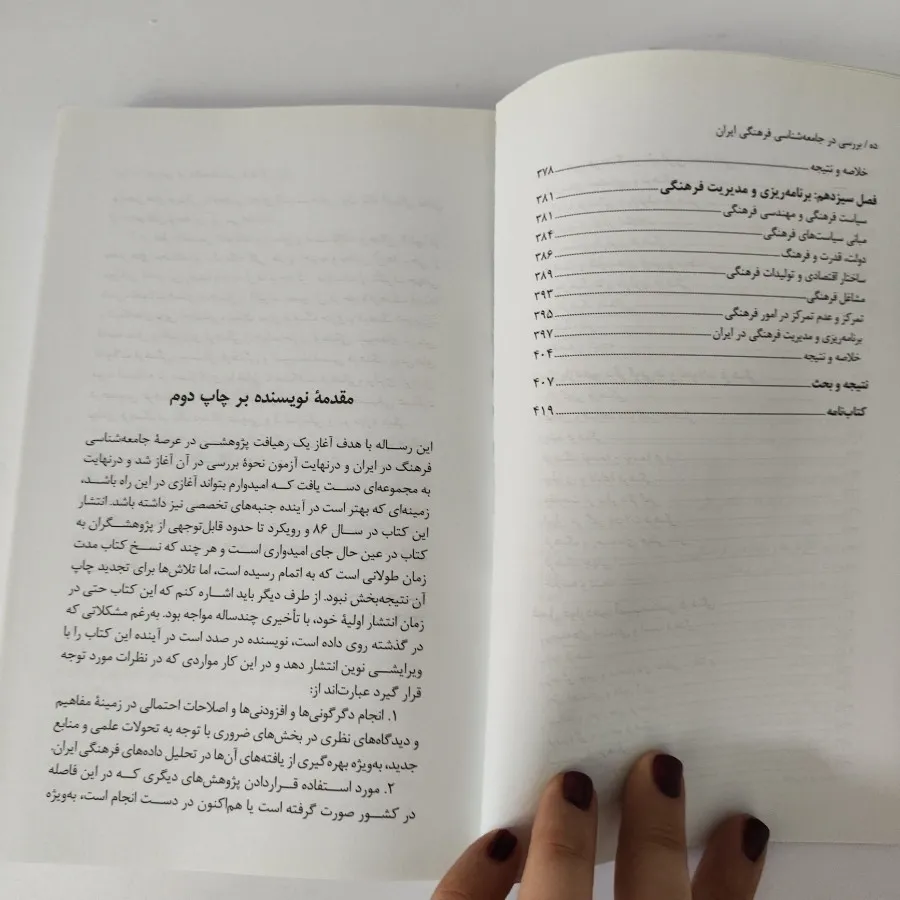 ده / بررسی در جامعه‌شناسی فرهنگی ایران
خلاصه و نتیجه ۳۷۸
فصل سیزدهم: برنامه‌ریزی و مدیریت فرهنگی ۳۸۱
سیاست فرهنگی و مهندسی فرهنگی ۳۸۱
مبانی سیاست‌های فرهنگی ۳۸۴
دولت، قدرت و فرهنگ ۳۸۶
ساختار اقتصادی و تولیدات فرهنگی ۳۸۹
مشاغل فرهنگی ۳۹۳
تمرکز و عدم تمرکز در امور فرهنگی ۳۹۵
برنامه‌ریزی و مدیریت فرهنگی در ایران ۳۹۷
خلاصه و نتیجه ۴۰۴
نتیجه و بحث ۴۰۷
کتاب‌نامه ۴۱۹
مقدمهٔ نویسنده بر چاپ دوم
این رساله با هدف آغاز یک رهیافت پژوهشی در عرصهٔ جامعه‌شناسی
فرهنگ در ایران و درنهایت آزمون نحوهٔ بررسی در آن آغاز شد و درنهایت
به مجموعه‌ای دست یافت که امیدوارم بتواند آغازی در این راه باشد،
زمینه‌ای که بهتر است در آینده جنبه‌های تخصصی نیز داشته باشد. انتشار
این کتاب در سال ۸۶ و رویکرد تا حدود قابل‌توجهی از پژوهشگران به
کتاب در عین حال جای امیدواری است و هر چند که نسخ کتاب مدت
زمان طولانی است که به اتمام رسیده است، اما تلاش‌ها برای تجدید چاپ
آن نتیجه‌بخش نبود. از طرف دیگر باید اشاره کنم که این کتاب حتی در
زمان انتشار اولیهٔ خود، با تأخیری چندساله مواجه بود. به‌رغم مشکلاتی که
در گذشته روی داده است، نویسنده در صدد است در آینده این کتاب را با
ویرایشی نوین انتشار دهد و در این کار مواردی که در نظرات مورد توجه
قرار گیرد عبارت‌اند از:
۱. انجام دگرگونی‌ها و افزودنی‌ها و اصلاحات احتمالی در زمینهٔ مفاهیم
و دیدگاه‌های نظری در بخش‌های ضروری با توجه به تحولات علمی و منابع
جدید، به‌ویژه بهره‌گیری از یافته‌های آن‌ها در تحلیل داده‌های فرهنگی ایران.
۲. مورد استفاده قراردادن پژوهش‌های دیگری که در این فاصله
در کشور صورت گرفته است یا هم‌اکنون در دست انجام است، به‌ویژه